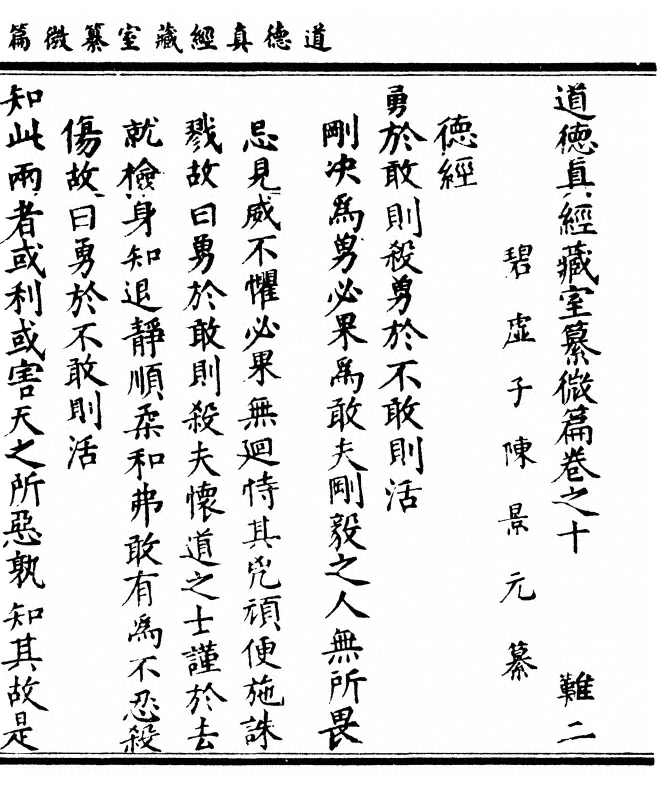 道德真經藏室纂微篇
道德真經藏室纂微篇卷之十 難二
碧虛子陳景元纂
德經
勇於敢則殺勇於不敢則活
剛決為勇必果為敢夫剛毅之人無所畏
忌見威不懼必果無廻恃其兇頑便施誅
戮故曰勇於敢則殺夫懷道之士謹於去
就檢身知退靜順柔和弗敢有為不忍殺
傷故曰勇於不敢則活
知此兩者或利或害天之所惡孰知其故是